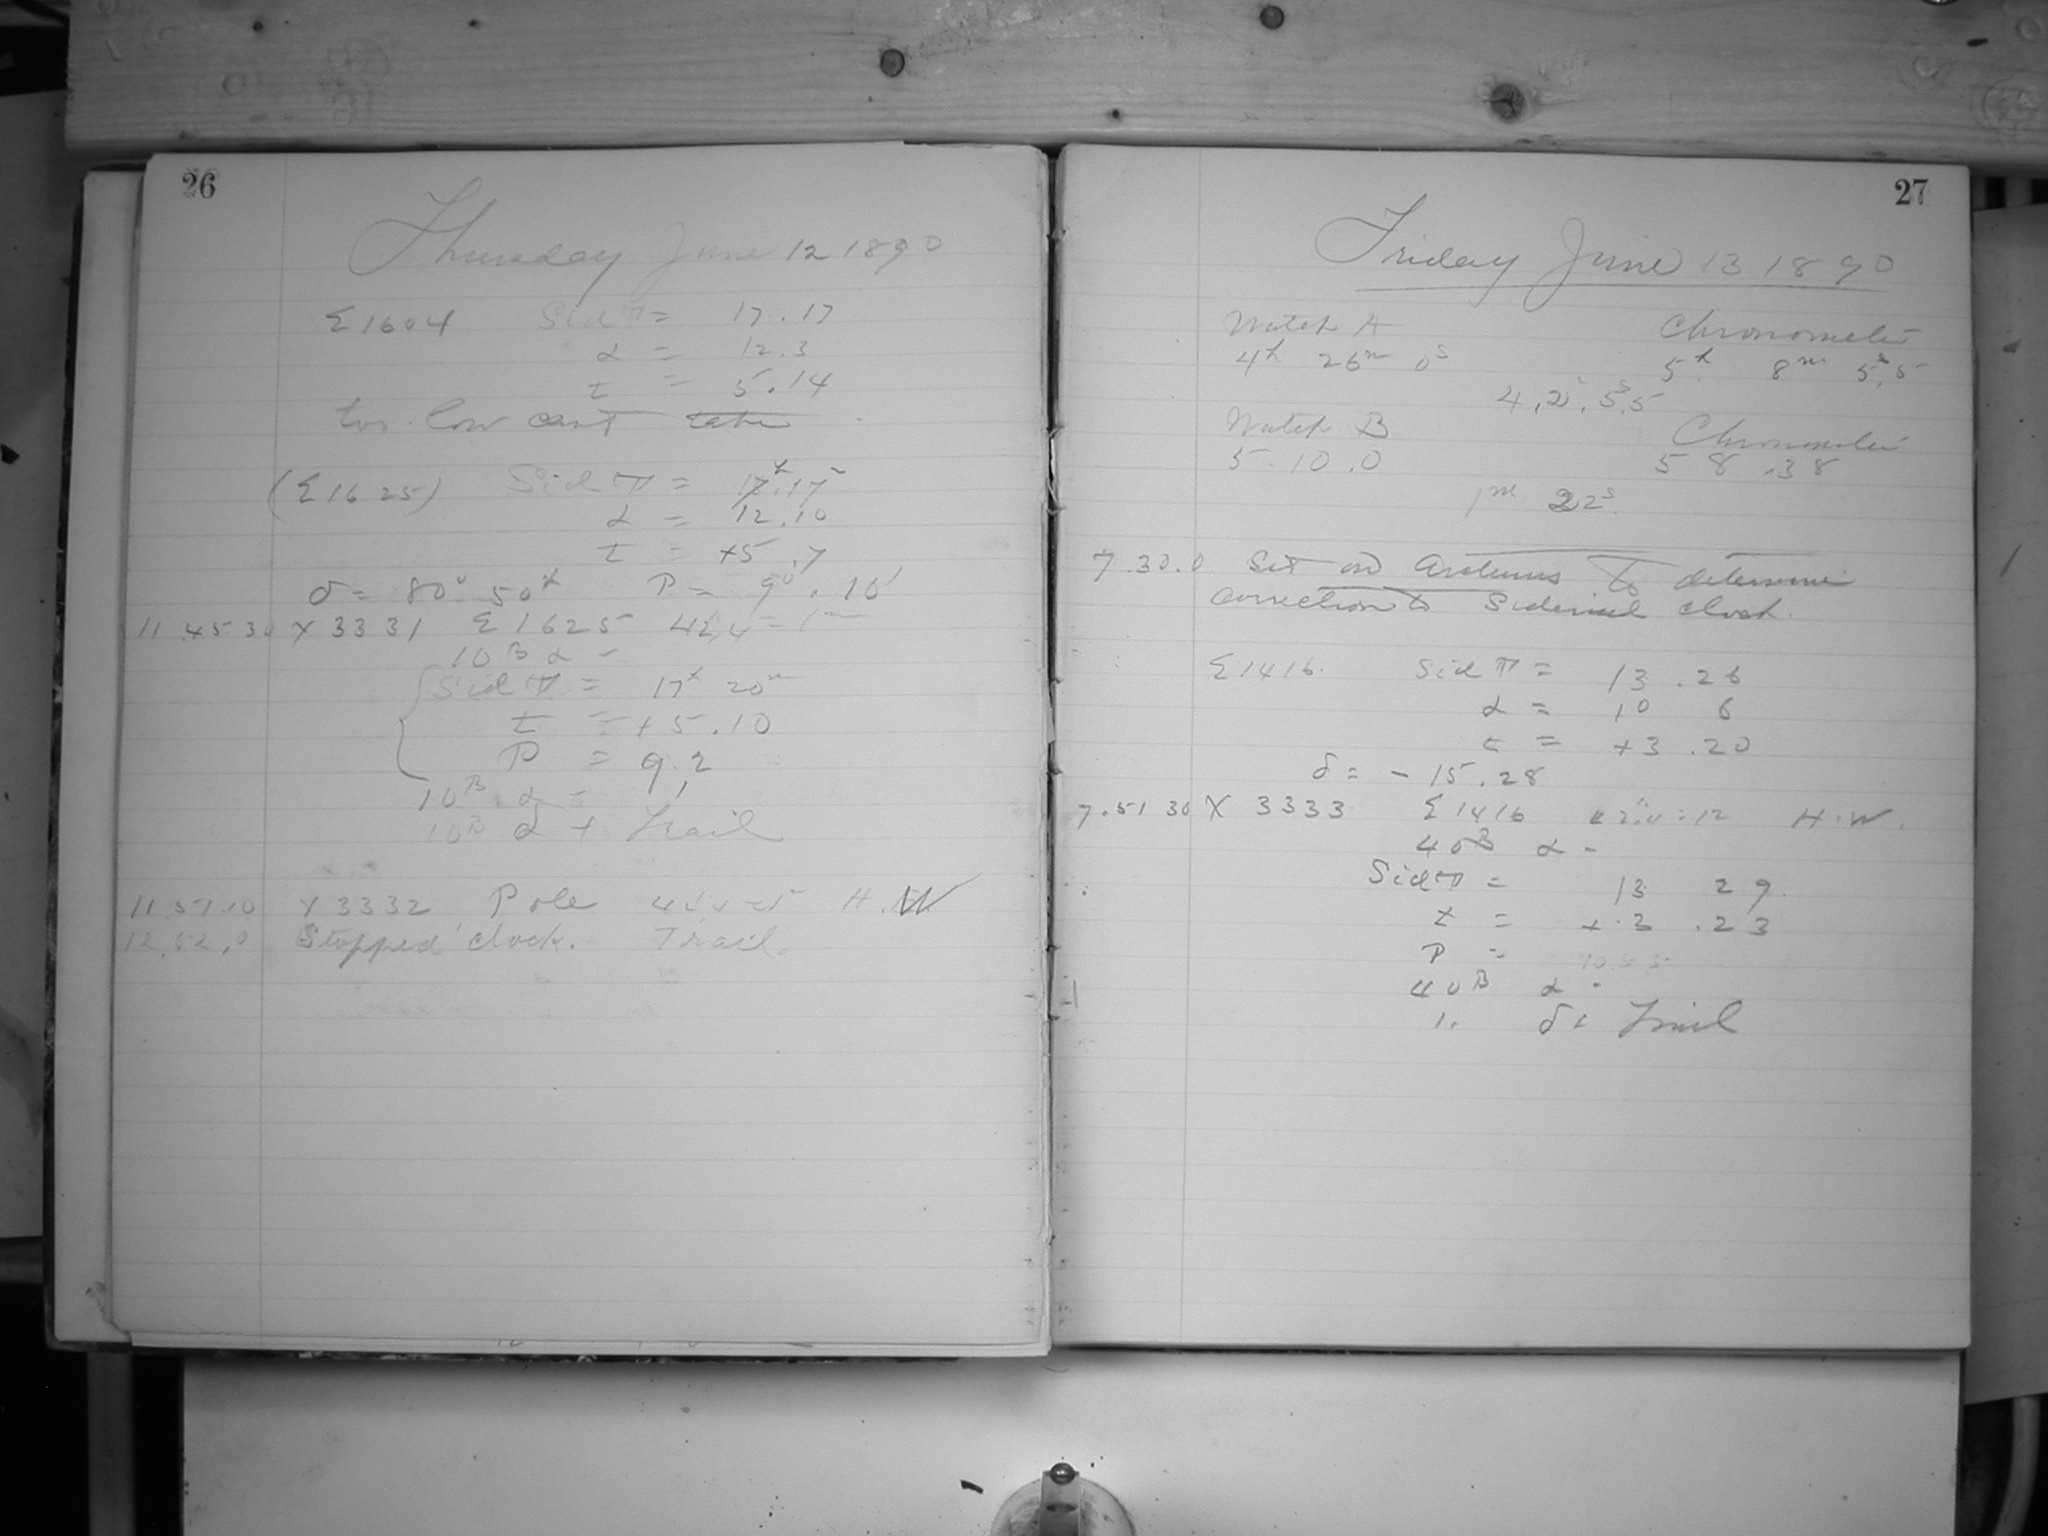 26
Thursday June 12 1890
Σ1604 Sid T = 17.17
α = 12.3
t = 5.14
too low cant take
(Σ1625) Sid T = 17h.17m
α = 12.10
t = +5.7
δ = 80° 50' P = 9°.10'
11 45 30 X 3331 Σ1625
10B α -
Sid T = 17h 20m
t = +5.10
P = 9.2
10B α -
10B α + Trail
11 57 10 X 3332 Pole H.W
12.52.0 Stopped clock. Trail.
27
Friday June 13 1890
Watch A Chronometer
4h 26m 0s 5h 8m 5s.5
Watch B Chronometer
5.10.0 5 8.38
1m 22s.
7.30.0 Set on Arcturus to determine
correction to Sidereal clock.
Σ1416. Sid T = 13.26
α = 10 6
t = +3.20
δ = -15.28
7.51 30 X 3333 Σ1416 H.W.
40B α -
Sid T = 13 29.
t = +3.23
P =
40B α -
δ+ Trail